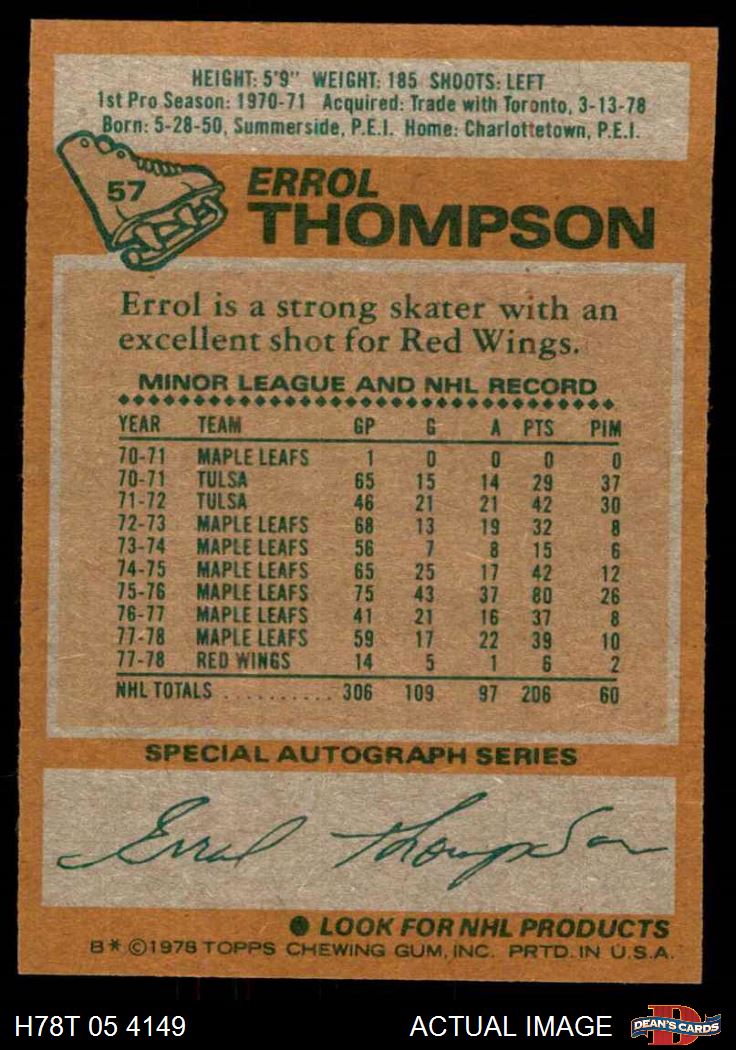 HEIGHT: 5'9" WEIGHT: 185 SHOOTS: LEFT
1st Pro Season: 1970-71 Acquired: Trade with Toronto, 3-13-78
Born: 5-28-50, Summerside, P.E.I. Home: Charlottetown, P.E.I.
57
ERROL
THOMPSON
Errol is a strong skater with an
excellent shot for Red Wings.
MINOR LEAGUE AND NHL RECORD
YEAR TEAM GP G A PTS PIM
70-71 MAPLE LEAFS 1 0 0 0 0
70-71 TULSA 65 15 14 29 37
71-72 TULSA 46 21 21 42 30
72-73 MAPLE LEAFS 68 13 19 32 8
73-74 MAPLE LEAFS 56 7 8 15 6
74-75 MAPLE LEAFS 65 25 17 42 12
75-76 MAPLE LEAFS 75 43 37 80 26
76-77 MAPLE LEAFS 41 21 16 37 8
77-78 MAPLE LEAFS 59 17 22 39 10
77-78 RED WINGS 14 5 1 6 2
NHL TOTALS .......... 306 109 97 206 60
SPECIAL AUTOGRAPH SERIES
Errol Thompson
● LOOK FOR NHL PRODUCTS
B* ©1978 TOPPS CHEWING GUM, INC. PRTD. IN U.S.A.
H78T 05 4149 ACTUAL IMAGE
D DEAN'S CARDS